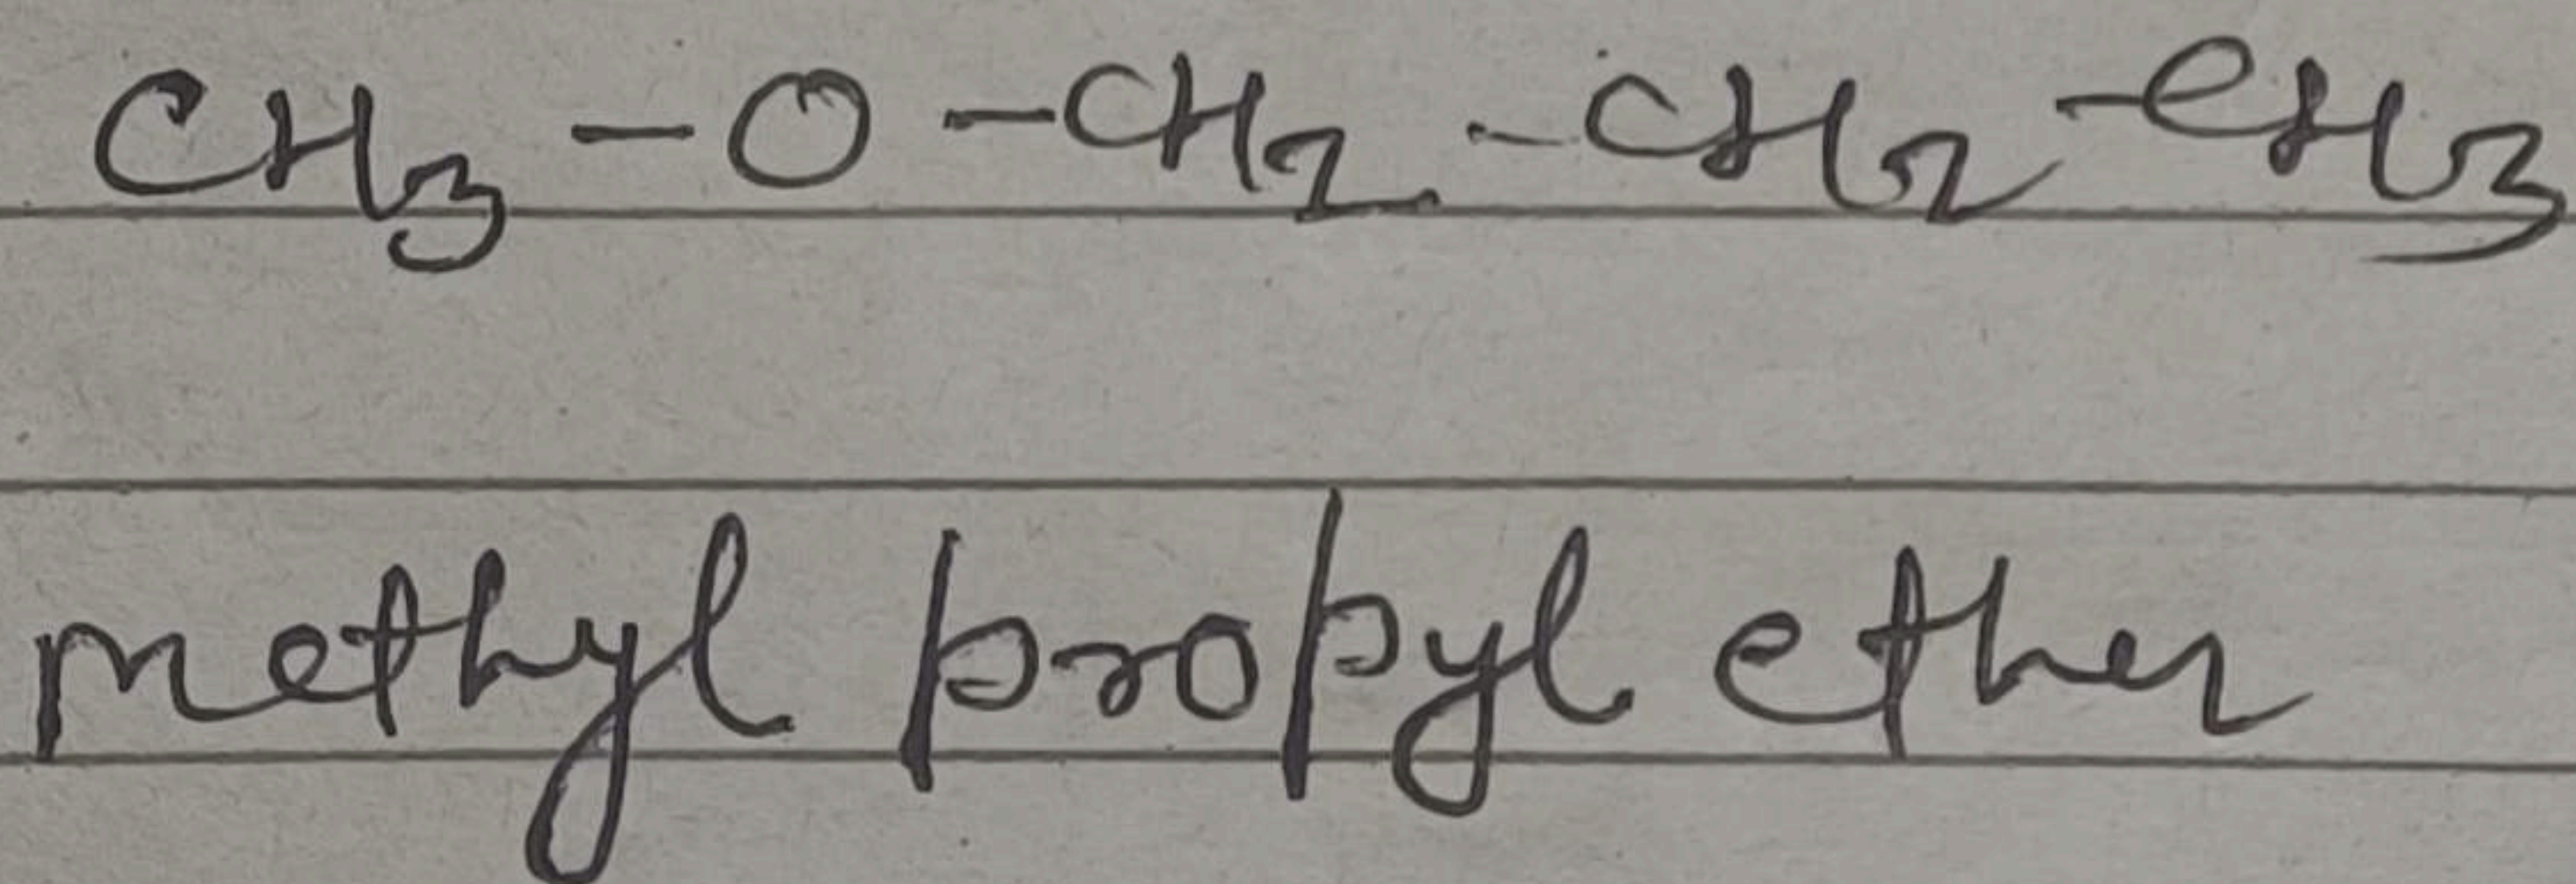 CH₃ - O - CH₂ - CH₂ - CH₃
methyl propyl ether